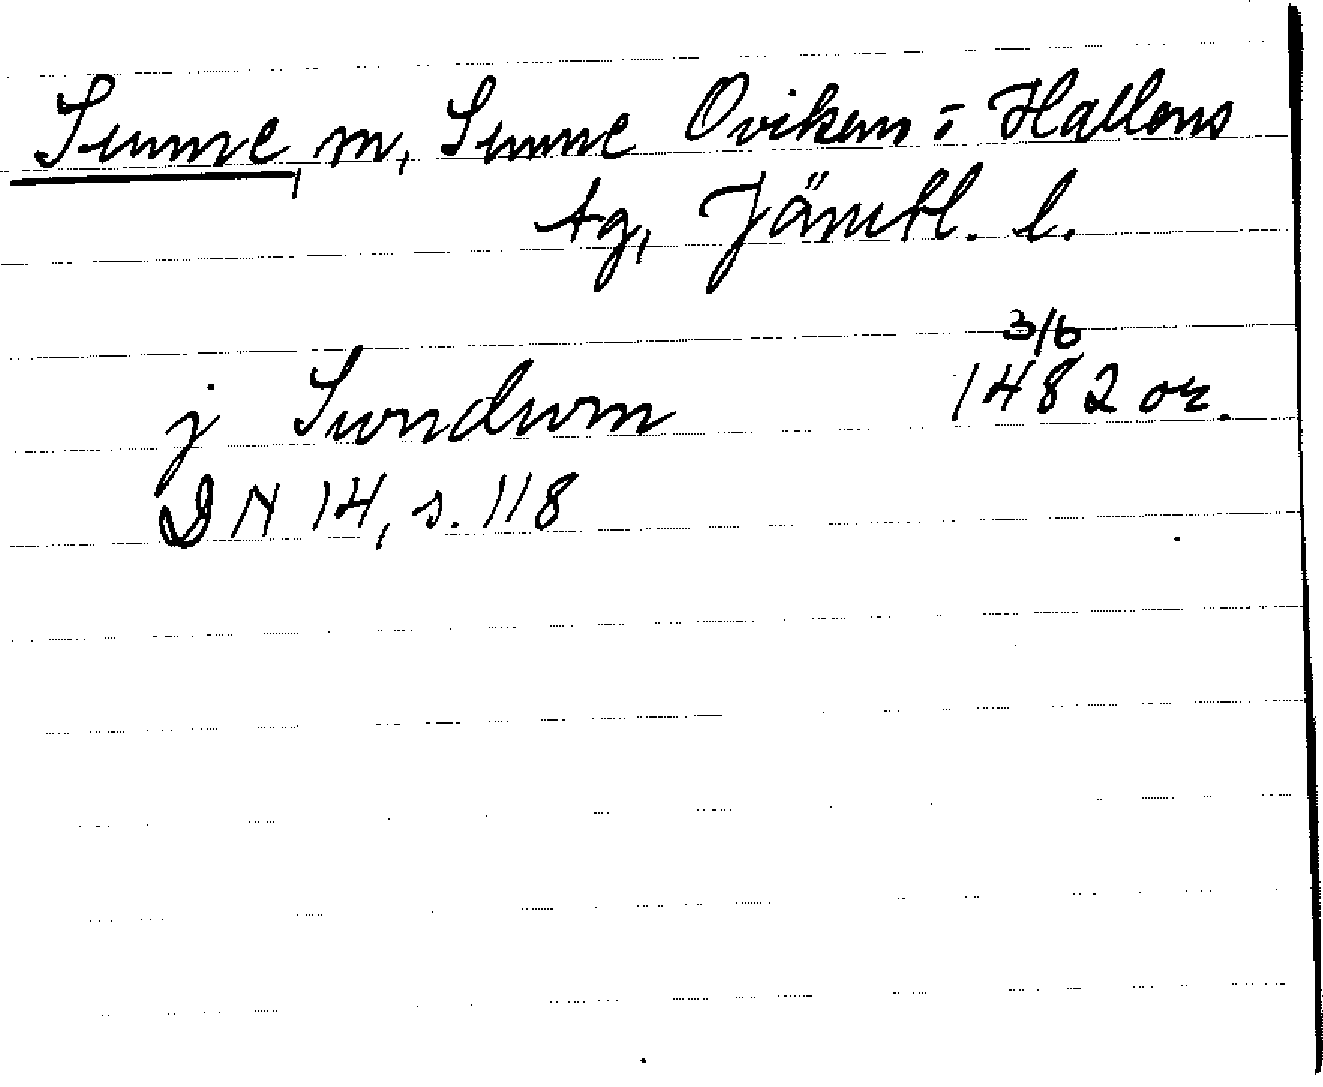 Sunne, m, Sunne Ovikens o Hallens
tg, Jämtl. l.
3/6
j Swndwm 1482 or.
DN 14, s. 118